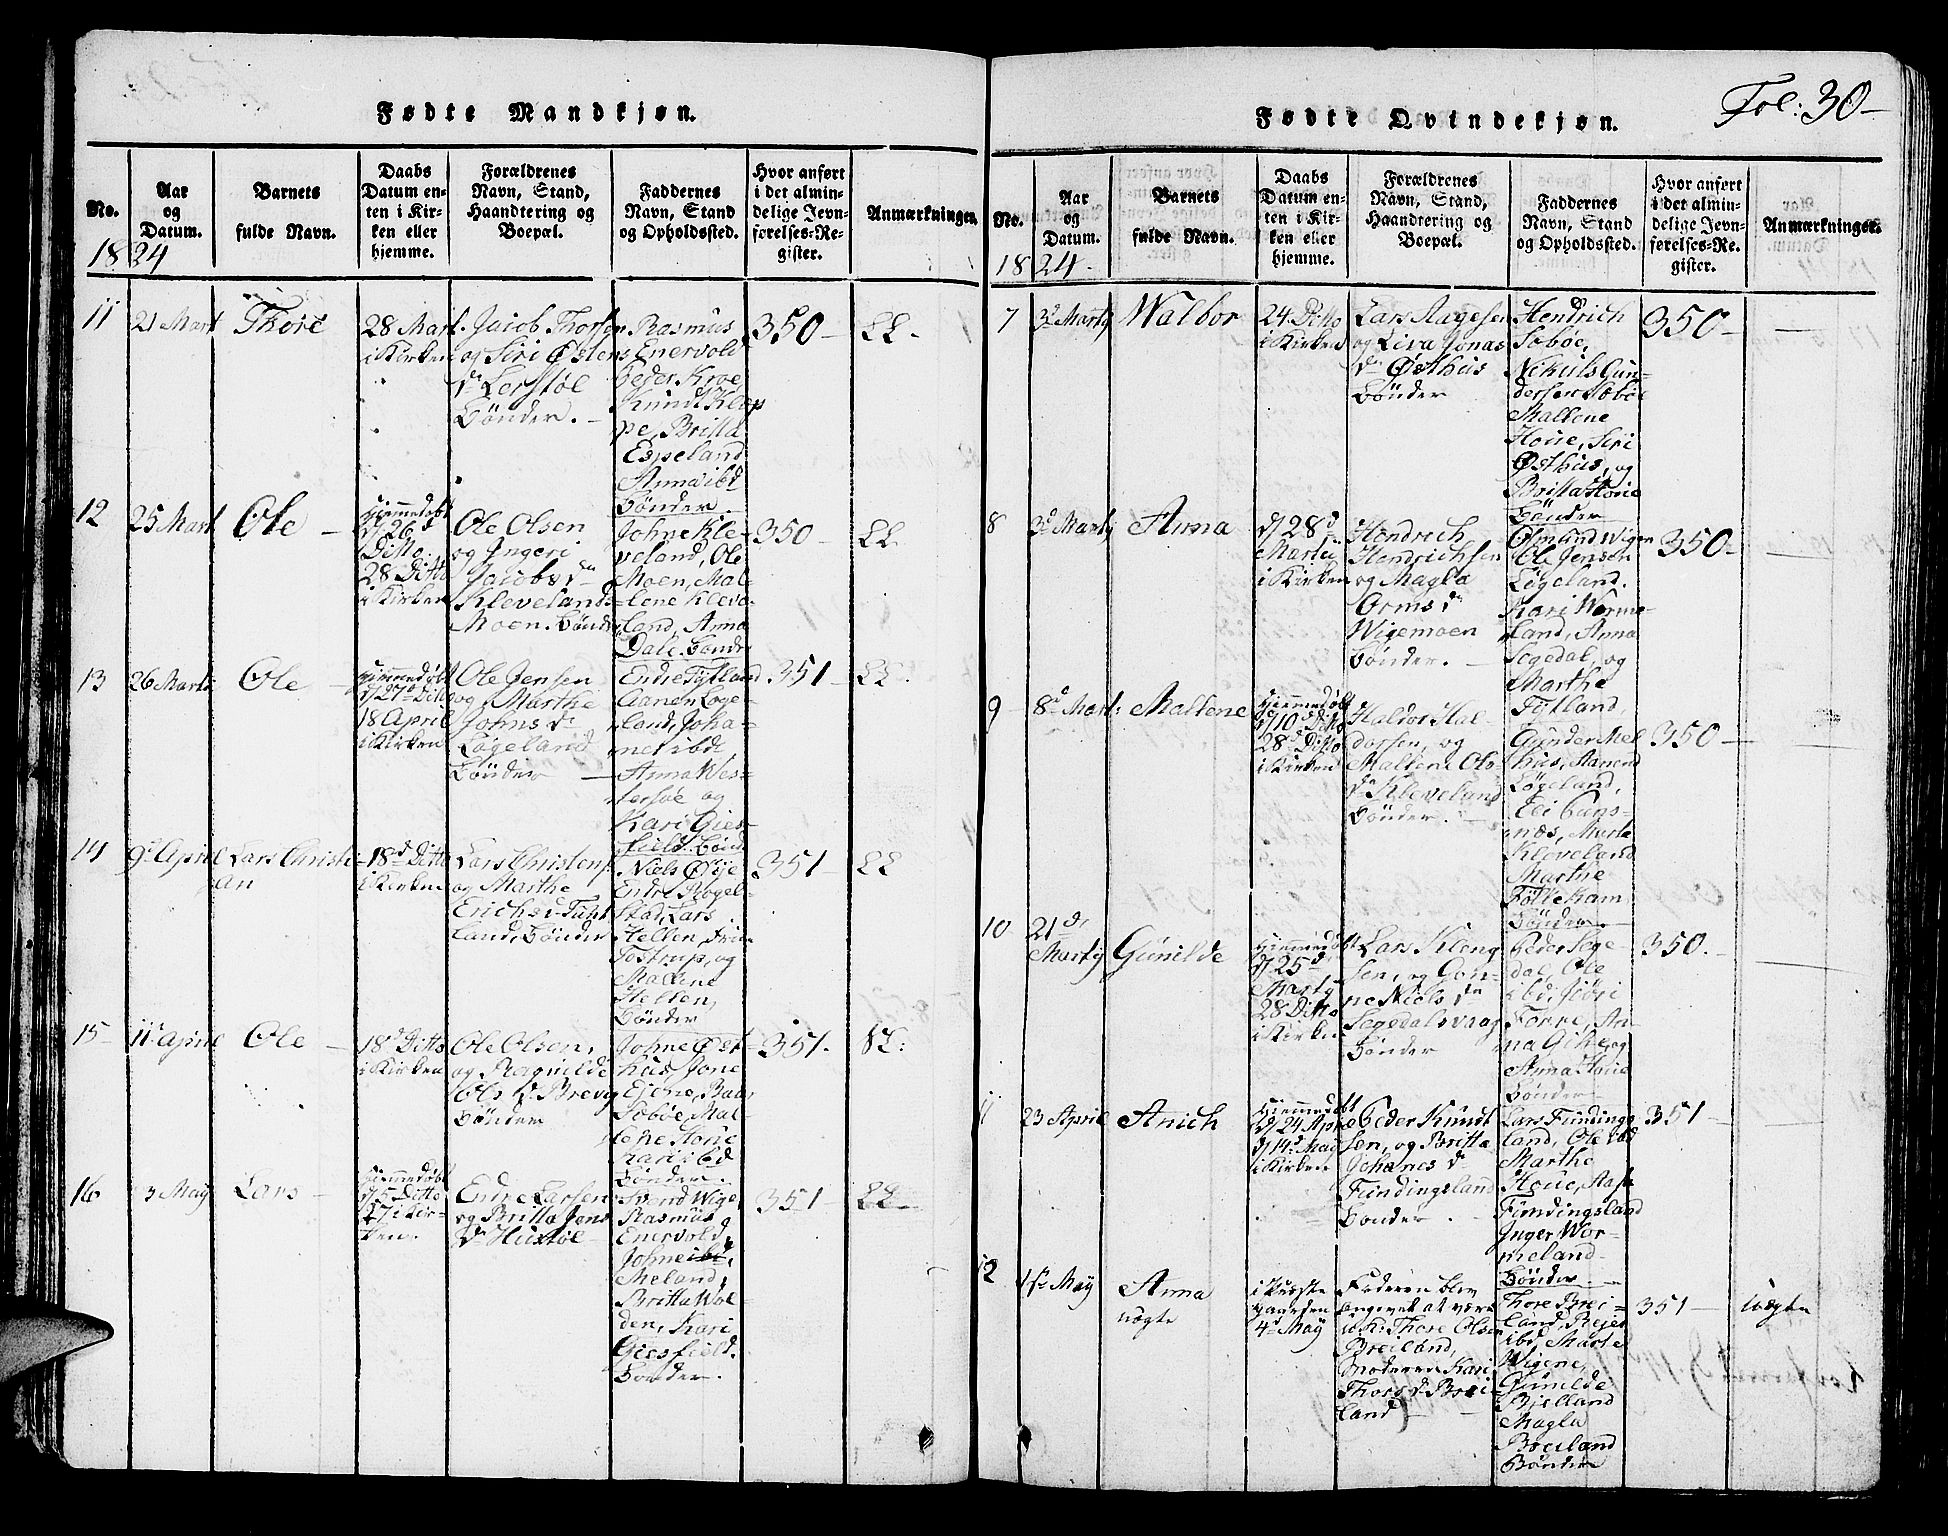 Fol: 30
Fødte Mandkjøn.
No.
Aar
og
Datum.
Barnets
fulde Navn.
Daabs
Datum en-
ten i Kir-
ken eller
hjemme.
Forældrenes
Navn, Stand,
Haandtering og
Boepæl.
Faddernes
Navn, Stand
og Opholdssted.
Hvor anført
i det almin-
delige Jevn-
førelses-Re-
gister.
Anmærkninger.
1824
11
21 Mart
Thore
28 Mart.
i Kirken
Jacob Thorsen
og Siri Østens
Dr Lerstøl
Bønder.
Rasmus
Enervold
Peder Kroe
Knudt Klop
pe, Britta
Espeland
Anna ibd
Bønder.
350
12
25 Mart
Ole
Hiemmedøbt
d/26d
Ditto.
28 Ditto
i Kirken
Ole Olsen
og Ingeri
Jacobs Dr
Klevelands-
Moen. Bønder
Johne Kle-
veland, Ole
Moen, Mal-
lene Kleve-
land, Anna
Dale. Bønder
350
13
26 Marti
Ole
Hiemmedøbt
d/27d Ditto
18 April
i Kirken
Ole Jensen
og Marthe
Johns Dr
Løgeland
Bønder
Endre Tytland
Aanen Løge-
land, Joha-
nes ibd,
Anna Wes-
tersøe og
Kari Gies-
field. Bønd
351
14
9d April
Lars Christi-
an
18d Ditto
i Kirken
Lars Christens
og Marthe
Erichs Dr Tuft
land, Bønder
Niels Øye
Endre Røgel-
stad, Lars
Hellen,
Tostrup, og
Mallene
Hellen,
Bønder
351
15
11 April
Ole
18d Ditto
i Kirken
Ole Olsen,
og Ragnilde
Ols Dr Brevig
Bønder
Johne Øst-
hus, Jone
Ejene, Baar
Søbøe, Mal-
lene Houe
Kari ibd
Bønder.
351.
16
3 May
Lars
Hiemmedøbt
d/5 Ditto
27 i Kir-
ken.
Endre Larsen
og Britta Jens
Dr Hustøl
Svend Wige,
Rasmus
Enervold,
Johne ibd,
Meland,
Britta Wol-
den, Kari
Giesfield.
Bønder.
351
Fødte Qvindekjøn.
No.
Aar
og
Datum.
Barnets
fulde Navn.
Daabs
Datum en-
ten i Kir-
ken eller
hjemme.
Forældrenes
Navn, Stand,
Haandtering og
Boepæl.
Faddernes
Navn, Stand
og Opholdssted.
Hvor anført
i det almin-
delige Jevn-
førelses-Re-
gister.
Anmærkninger.
1824.
7
3d Martj
Walbor
24 Ditto
i Kirken
Lars Aagesen
og Liva Jonas
Dr Østhus
Bønder
Hendrich
Søbøe,
Nekuls Gun-
dersen Søbøe
Mallene
Houe, Siri
Østhus, og
Britta Houe
Bønder
350
8
3d Martj
Anna
d/28d
Martij
i Kirken
Hendrich
Hendrichsen
og Magla
Orms Dr
Wigemoen
Bønder.
Osmund Wigen
Ole Jensen
Løgeland.
Kari Worme-
land, Anna
Segedal, og
Marthe
Tytland,
350
9
8d Mart:
Mallene
Hiemmedøbt
d/10d Ditto
28d Ditto
i Kirken
Haldor Hal-
dorsen, og
Mallene Ols-
Dr Kleveland
Bønder.
Gunder Mel
hus, Aanend
Løgeland,
Eli Eans-
næs, Marta
Kleveland
Marthe
Følle Kam
Bønder.
350
10
21d
Martij
Gunilde
Hiemmedøbt
d/25d,
Martij
28 Ditto
i Kirken
Lars Klong
sen, og Gon-
ne Niels Dr
Segedalsvaag
Bønder
Peder Sege
dal, Ole
ibd, Jøri
Forre, An-
na Gike, og
Anna Houe
Bønder
350.
11
23 April
Anich
Hiemmedøbt
d/24 Apr
d/14d May
i Kirken
Peder Knudt
sen, og Britta
Johanes Dr
Fundingsland
Bønder.
Lars Funding
land, Ole ibd
Marthe
Houe, Rasm
Fundingsland
Inger Wor-
meland
Bønder.
351
12
1ste May
Anna
uægte
gaarden
4d May
Faderen blev
angivet at være
Thore Olsen
Breiland,
Moderen Kari
Thors Dr Brei-
land
Thore Brei-
land, Reier
ibd, Marte
Wigene,
Gunilde
Bielland
Magla
Breiland
Bønder
351
uægte